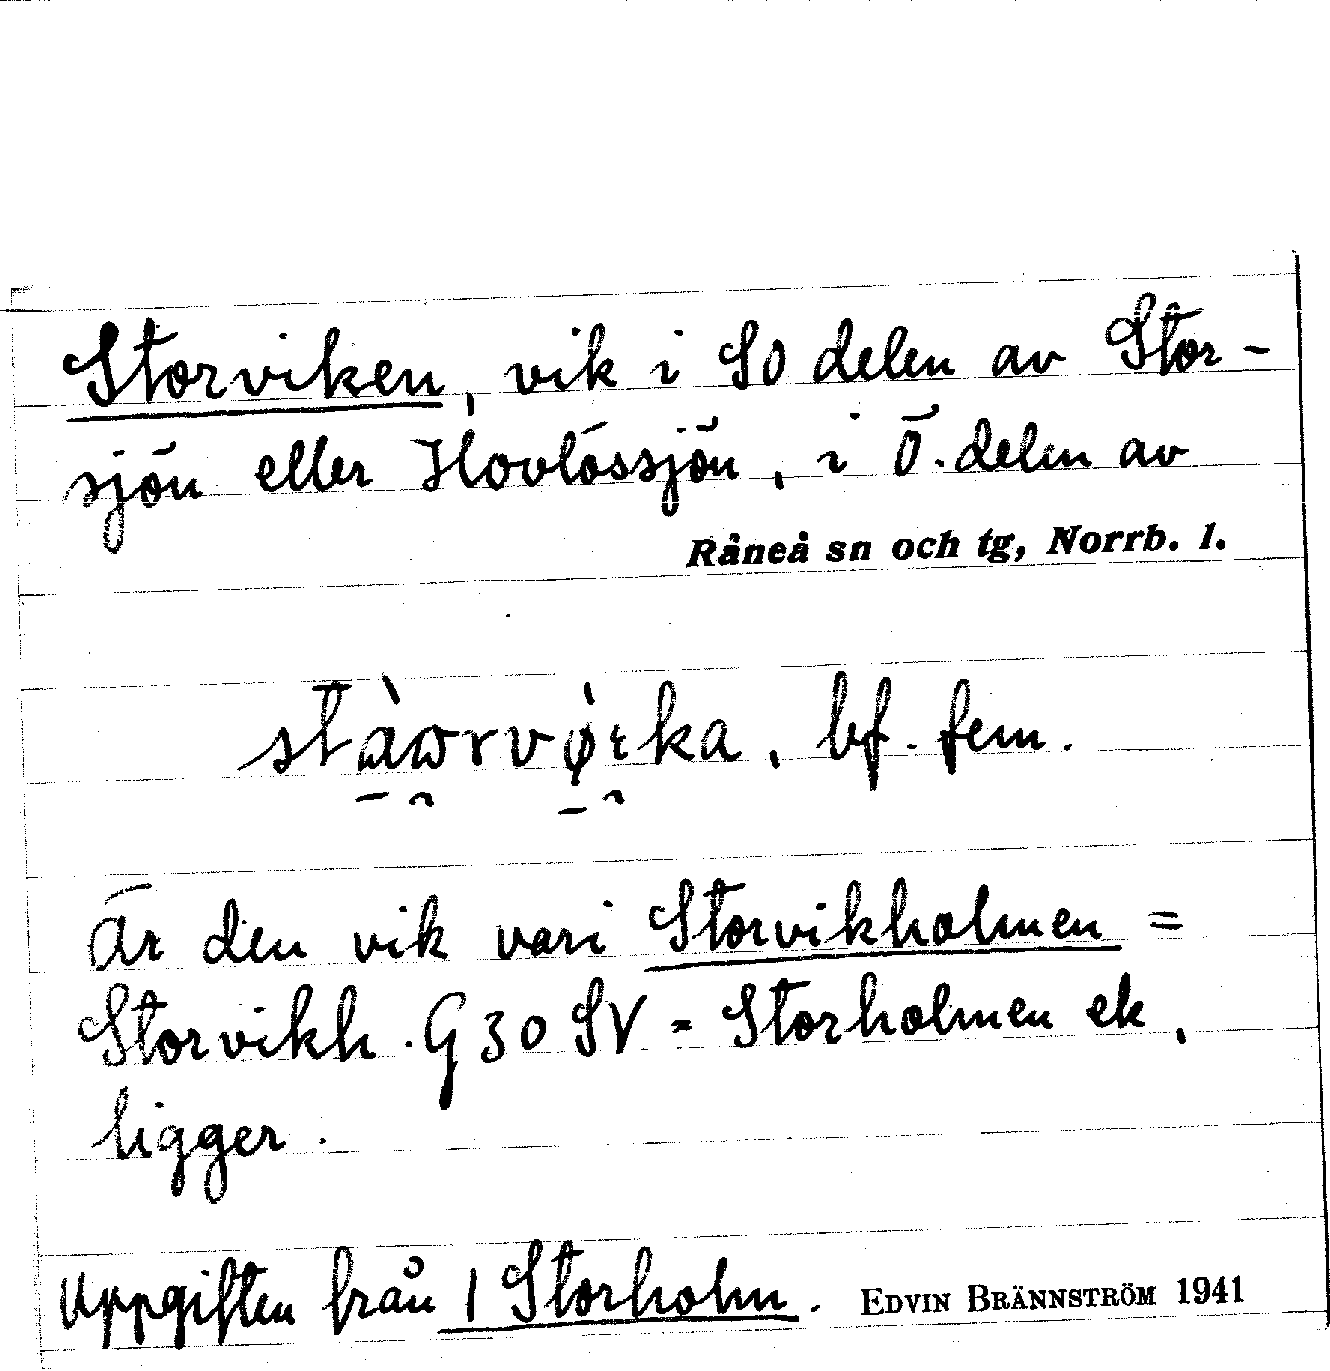 Storviken, vik i SO delen av Stor-
sjön eller Hovlössjön, i Ö. delen av
Råneå sn och tg, Norrb. l.
stàωrvø̀ɩka, bf. fem.
Är den vik vari Storvikholmen =
Storvikh. G 30 SV = Storholmen ek,
ligger.
Uppgiften från 1 Storholm. EDVIN BRÄNNSTRÖM 1941